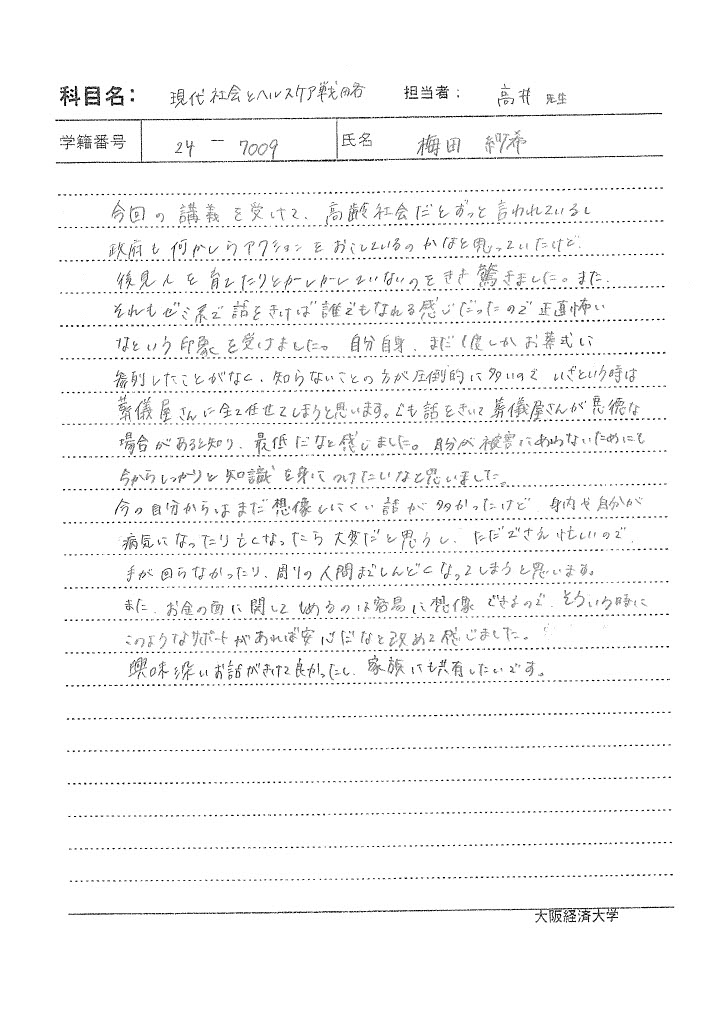 科目名： 現代社会とヘルスケア戦略 担当者： 高井 先生
学籍番号 24 － 7009 氏名 梅田 紗希
今回の講義を受けて、高齢社会だとずっと言われているし
政府も何かしらアクションをおこしているのかなと思っていたけど、
後見人を育てたりとかしかしていないのをきき驚きました。また、
それもゼミ系で話をきけば誰でもなれる感じだったので正直怖い
なという印象を受けました。自分自身、まだ1度しかお葬式に
参列したことがなく、知らないことの方が圧倒的に多いので いざという時は
葬儀屋さんに全て任せてしまうと思います。でも話をきいて葬儀屋さんが悪徳な
場合があると知り、最低だなと感じました。自分が被害にあわないためにも
今からしっかりと知識を身につけたいなと思いました。
今の自分からはまだ想像しにくい話が多かったけど、身内や自分が
病気になったり亡くなったら大変だと思うし、ただでさえ忙しいので、
手が回らなかったり、周りの人間までしんどくなってしまうと思います。
また、お金の面に関してもめるのは容易に想像できるので、そういう時に
このようなサポートがあれば安心だなと改めて感じました。
興味深いお話がきけて良かったし、家族にも共有したいです。
大阪経済大学